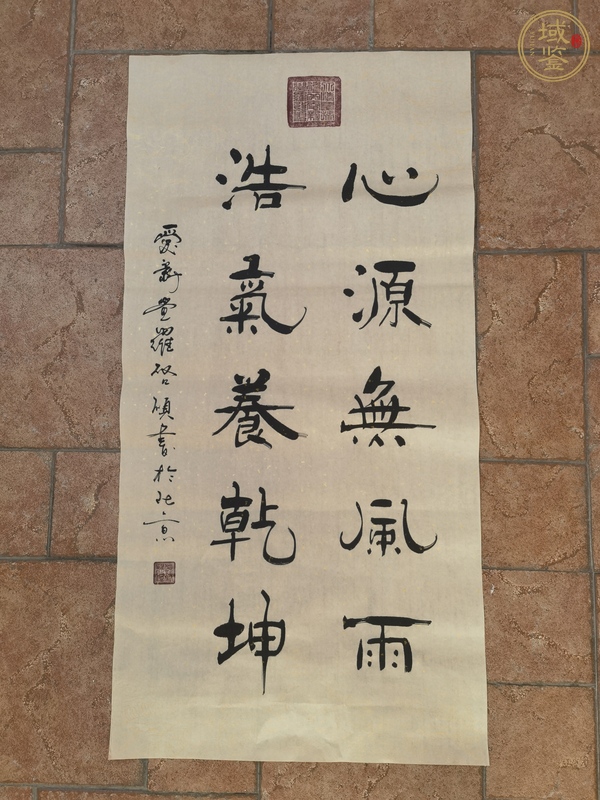 心源無風雨
浩氣養乾坤
愛新覺羅啓碩書於北京
域鉴